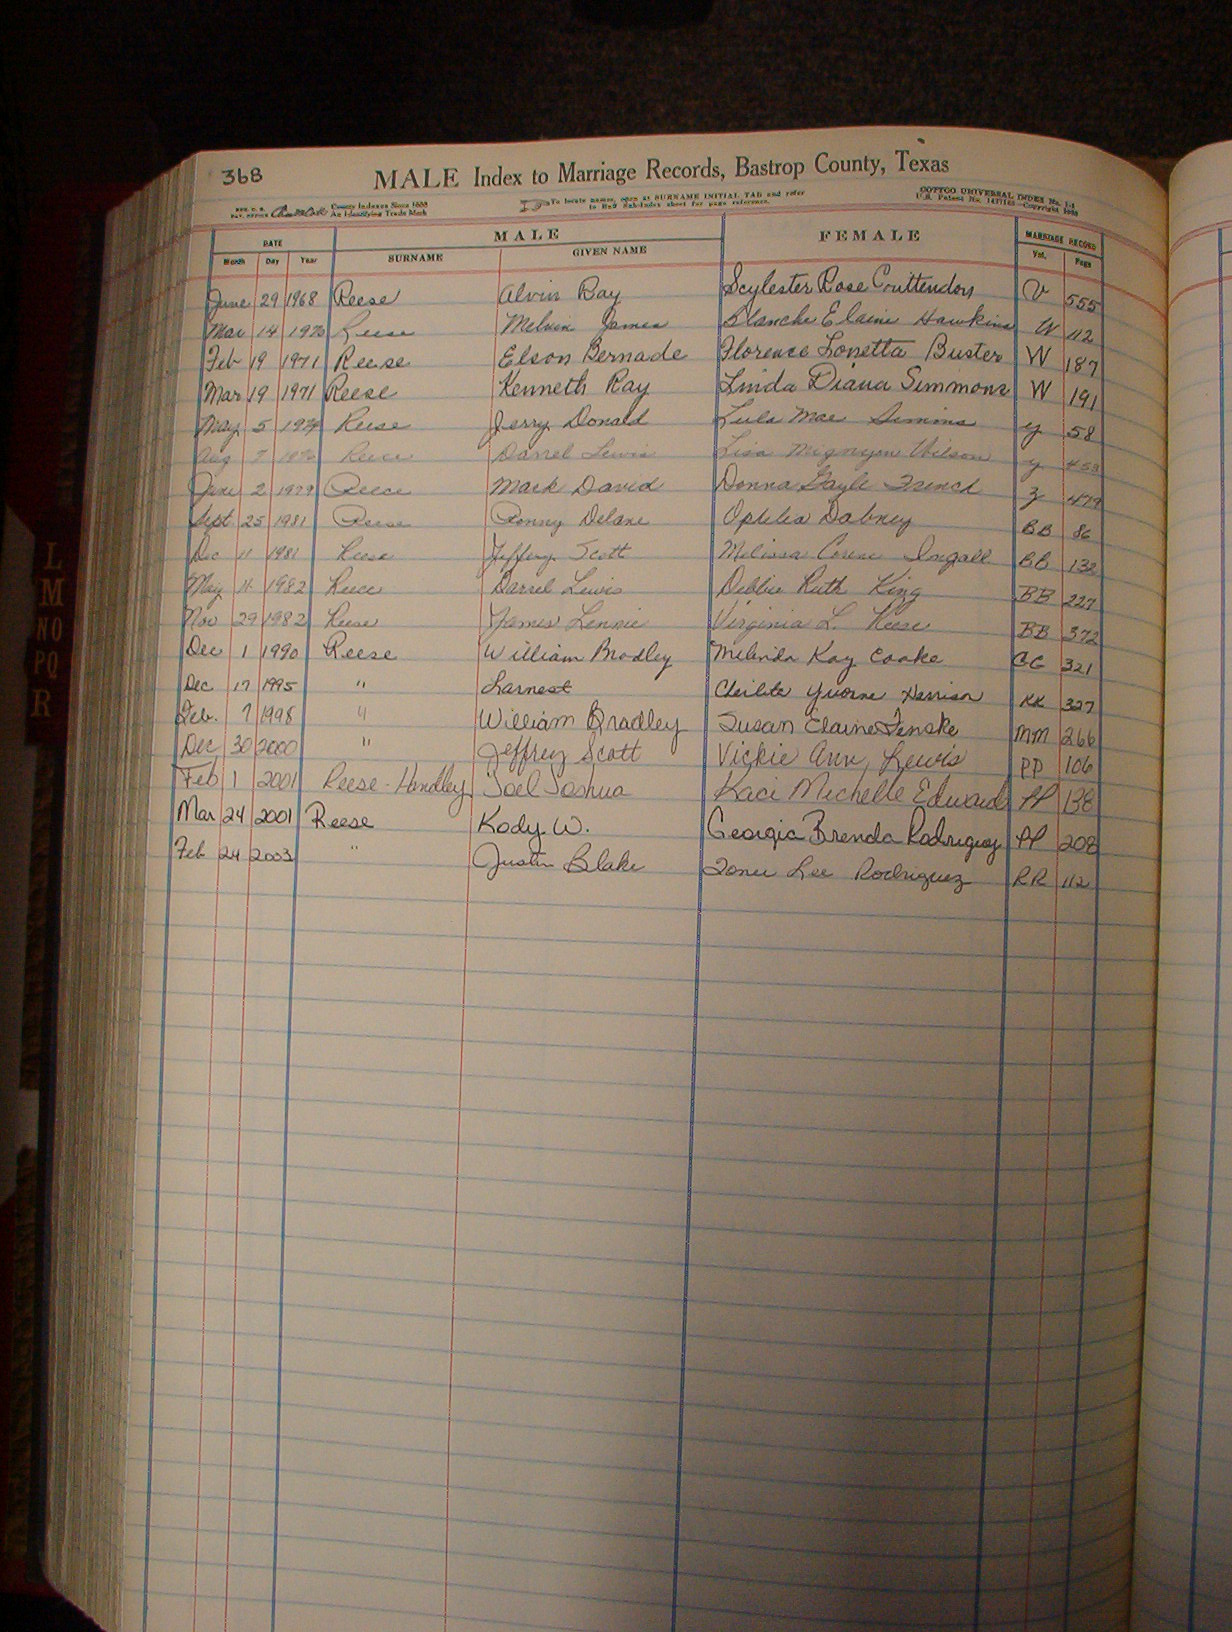 368
MALE Index to Marriage Records, Bastrop County, Texas
County Indexes Since 1888
An Identifying Trade Mark
To locate names, open at SURNAME INITIAL TAB and refer
COTTCO UNIVERSAL INDEX No.
U.S. Patent No.
DATE MALE FEMALE MARRIAGE RECORD
Month Day Year SURNAME GIVEN NAME Vol. Page
June 29 1968 Reese Alvin Ray Scylester Rose Cruttendon V 555
Mar 14 1970 Reese Melvin James Blanche Elaine Hawkins W 112
Feb 19 1971 Reese Elson Bernade Florence Lonetta Buster W 187
Mar 19 1971 Reese Kenneth Ray Linda Diana Simmons W 191
May 5 Reese Jerry Donald Lula Mae Simms y 58
Aug 7 Reece Darrel Lewis Lisa Wilson y 453
June 2 1979 Reece Mark David Donna Gayle French z 479
Sept 25 1981 Reese Ronny Delane Ophelia Dabney BB 86
Dec 11 1981 Reese Jeffery Scott Melissa Ingall BB 132
May 1982 Reece Darrel Lewis Debbie Ruth King BB 227
Nov 29 1982 Reese James Lennie Virginia L. Reese BB 372
Dec 1 1990 Reese William Bradley Melinda Kay Cooke GG 321
Dec 17 1995 " Larnest Yvorne Harrison KK 327
Feb. 7 1998 " William Bradley Susan Elaine Fenske MM 266
Dec 30 2000 " Jeffrey Scott Vickie Ann Lewis PP 106
Feb 1 2001 Reese-Handley Joel Joshua Kaci Michelle Edwards PP 138
Mar 24 2001 Reese Kody W. Georgia Brenda Rodriguez PP 208
Feb 24 2003 " Justin Blake Lee Rodriguez RR 112
L
M
NO
PQ
R